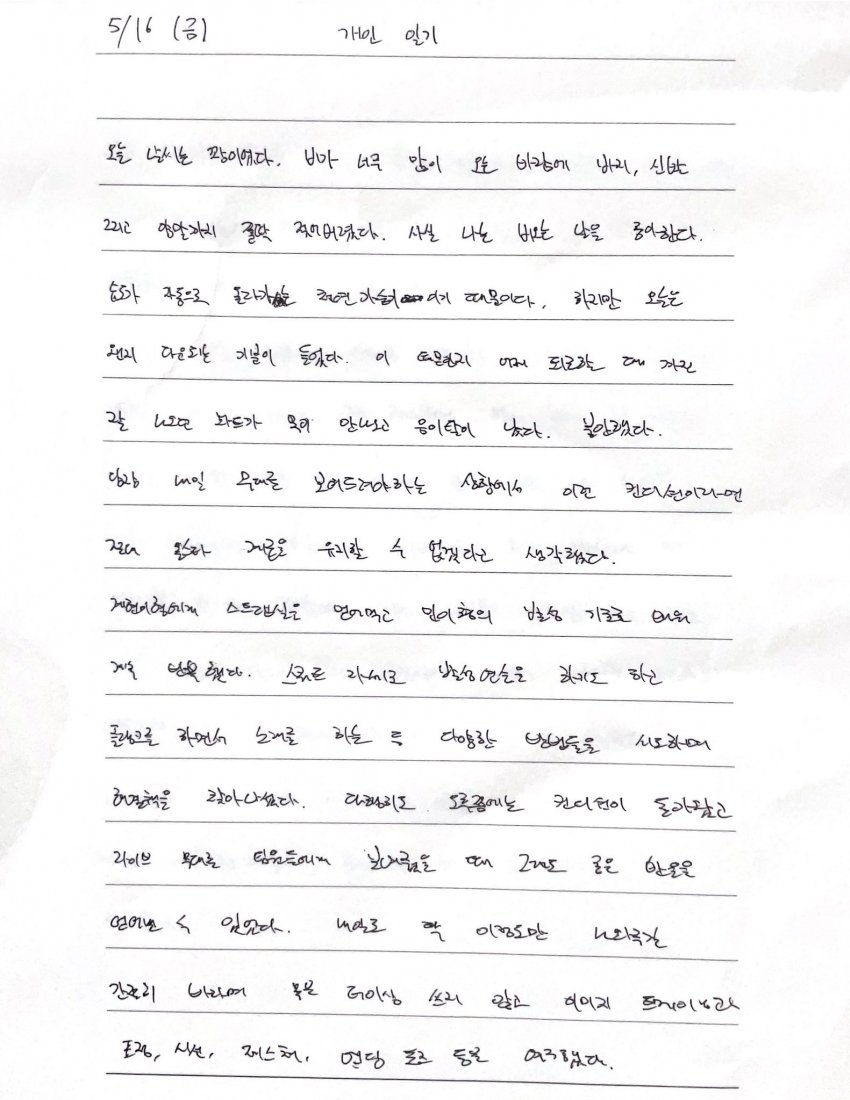 5/16 (금) 개인 일기
오늘 날씨는 꽝이였다. 비가 너무 많이 오는 바람에 바지, 신발
그리고 양말까지 쫄딱 젖어버렸다. 사실 나는 비오는 날을 좋아한다.
습도가 자동으로 올라가는 천연가습이기 때문이다. 하지만 오늘은
왠지 다운되는 기분이 들었다. 이 때문인지 어제 퇴근하는 때 까진
잘 나오던 파트가 목이 안나오고 음이탈이 났다. 불안했다.
당장 내일 무대를 보여드려야하는 상황에서 이런 컨디션이라면
절대 원하는 결과를 유지할 수 없겠다고 생각했다.
스트렙실을 얻어먹고 민이형의 발성 기초로 배워
계속 연습했다. 스쿼트 자세로 발성연습을 하기도 하고
플랭크를 하면서 노래를 하는 등 다양한 방법들을 시도하며
해결책을 찾아나섰다. 다행히도 오후쯤에는 컨디션이 돌아왔고
라이브 무대를 팀원들에게 보여줬을 때 그래도 좋은 반응을
얻어낼 수 있었다. 내일도 딱 이정도만 나와주길
간절히 바라며 목은 더이상 쓰지 않고 이미지 트레이닝과
표정, 시선, 제스처, 엔딩 포즈 등을 연구했다.